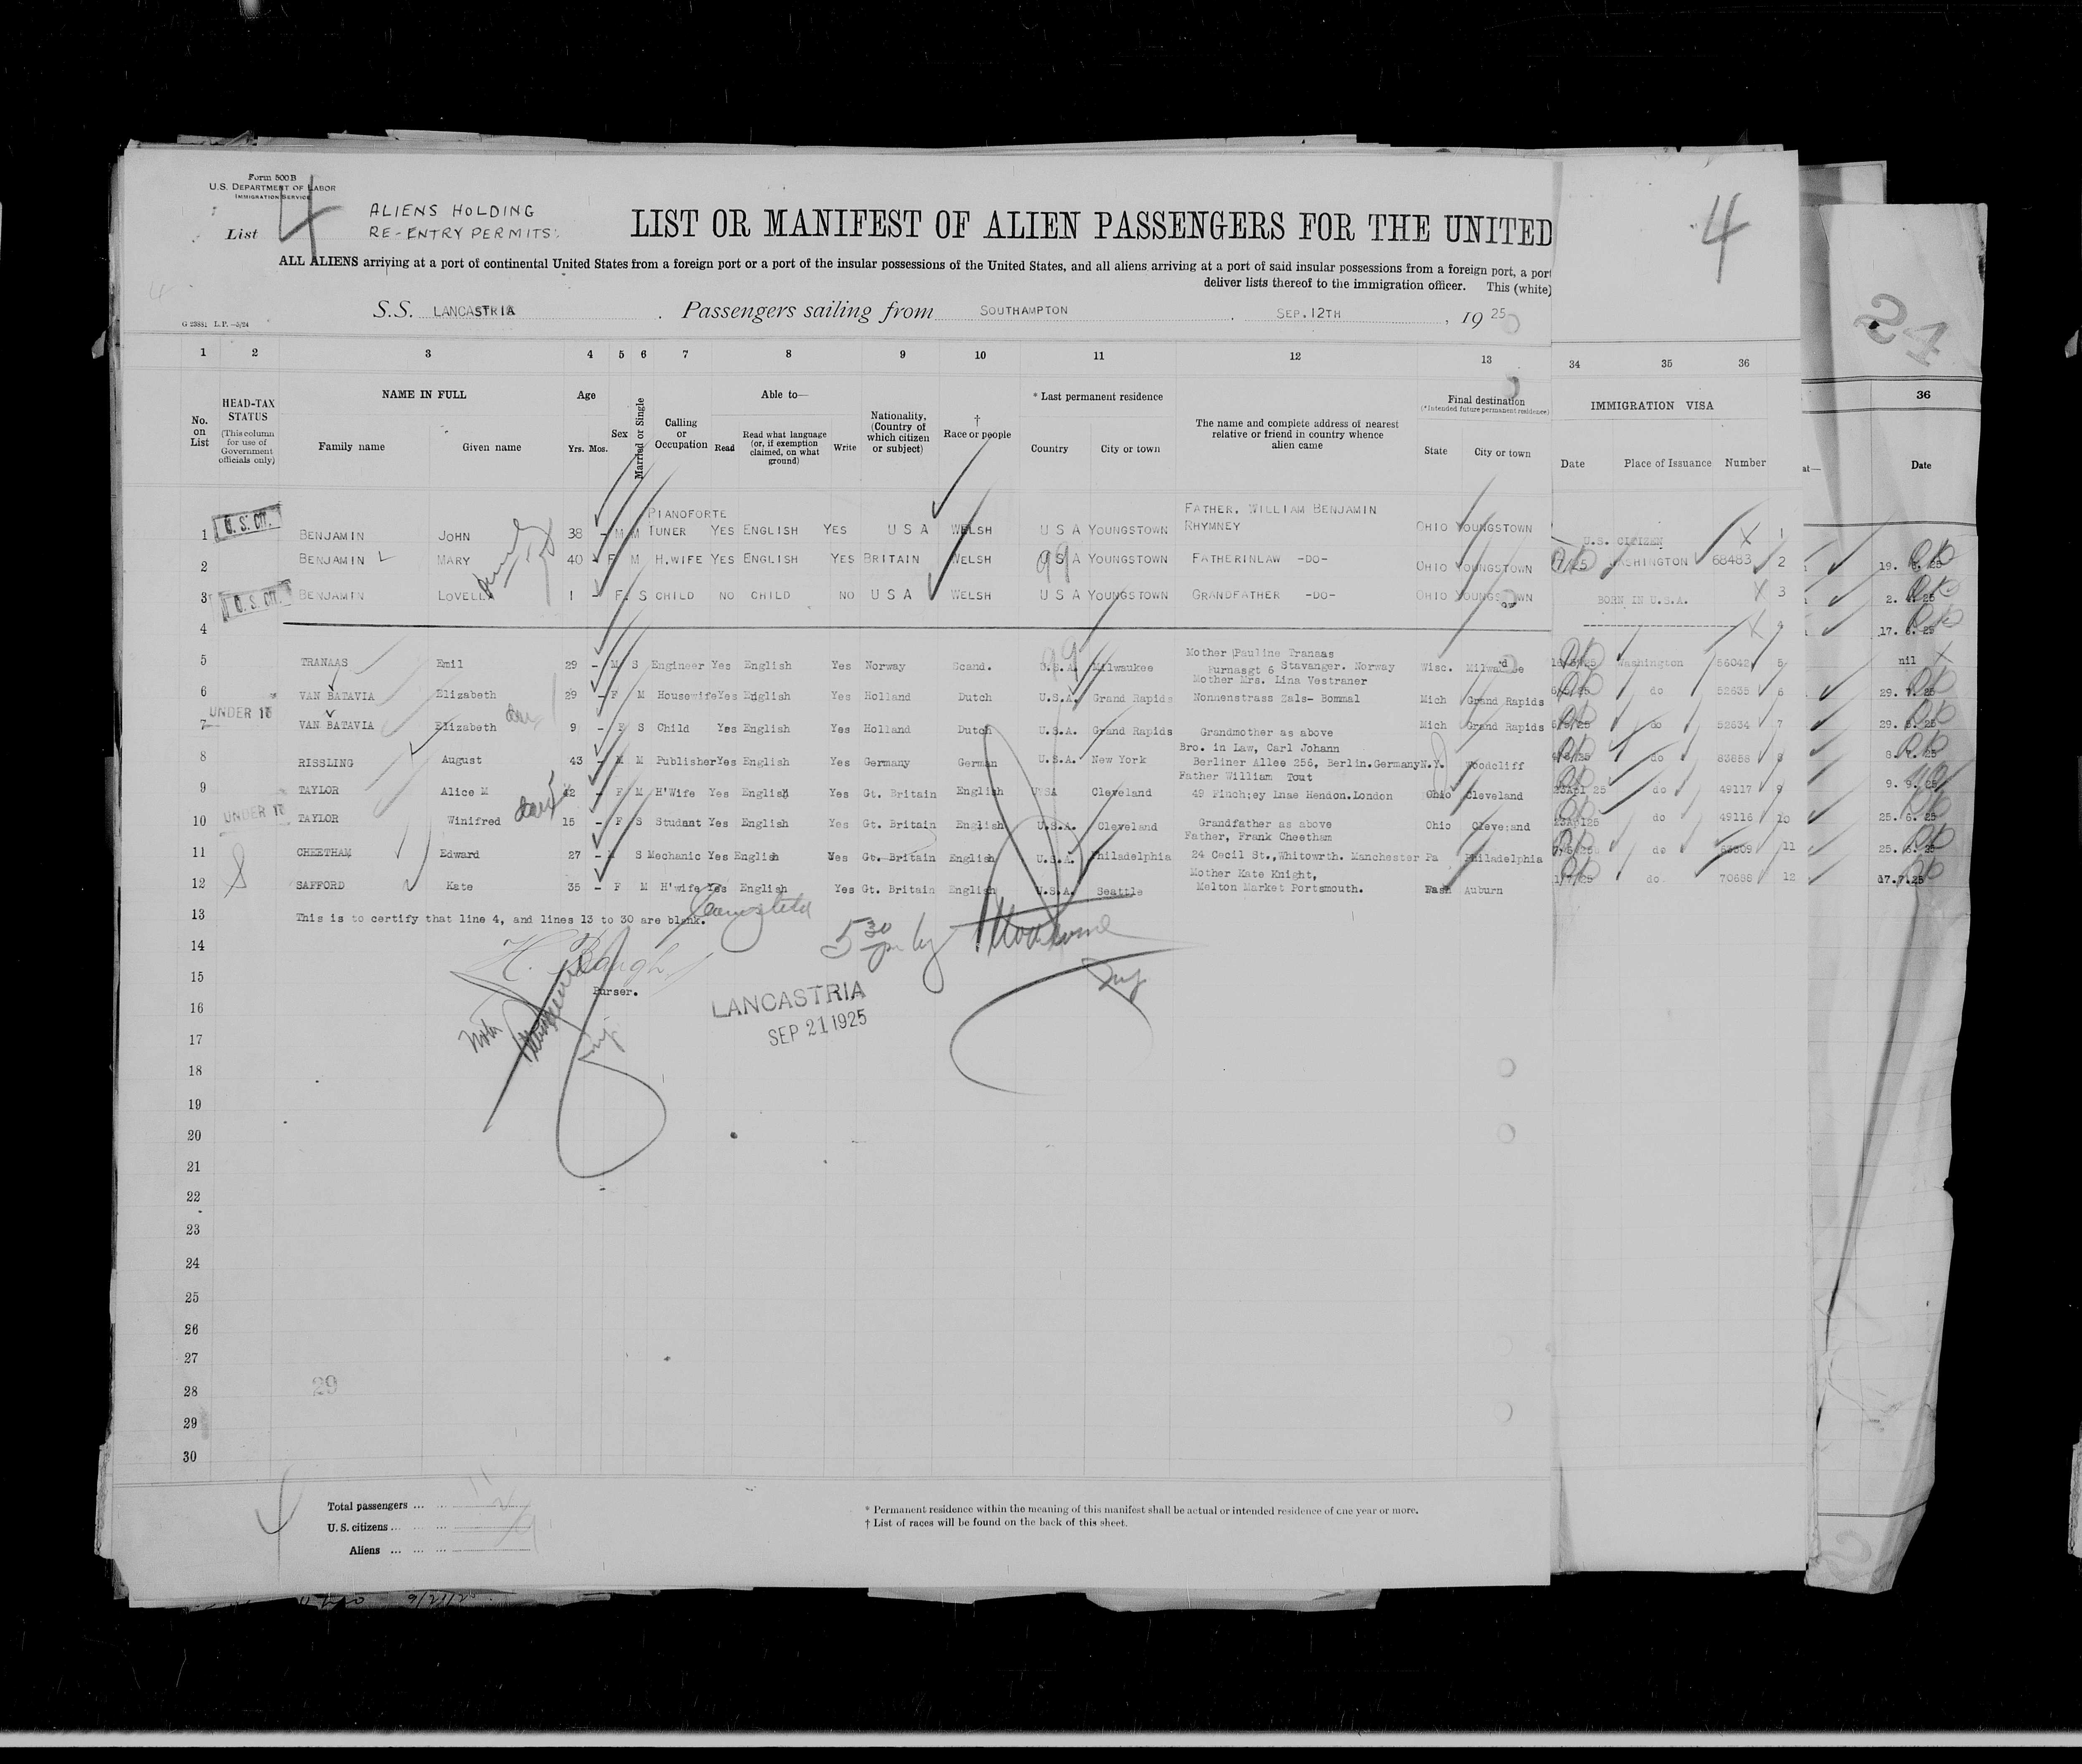 Form 500B
U.S. DEPARTMENT OF LABOR
IMMIGRATION SERVICE
List 4
ALIENS HOLDING
RE-ENTRY PERMITS.
LIST OR MANIFEST OF ALIEN PASSENGERS FOR THE UNITED
4
ALL ALIENS arriving at a port of continental United States from a foreign port or a port of the insular possessions of the United States, and all aliens arriving at a port of said insular possessions from a foreign port, a port
deliver lists thereof to the immigration officer. This (white)
S.S. LANCASTRIA . Passengers sailing from SOUTHAMPTON . SEP. 12TH , 1925
G 23881 L.P. —3/24
1 2 3 4 5 6 7 8 9 10 11 12 13 34 35 36
36
No. on List
HEAD-TAX STATUS
(This column for use of Government officials only)
NAME IN FULL
Family name Given name
Age
Yrs. Mos.
Sex
Married or Single
Calling or Occupation
Able to—
Read
Read what language (or, if exemption claimed, on what ground)
Write
Nationality, (Country of which citizen or subject)
† Race or people
* Last permanent residence
Country City or town
The name and complete address of nearest relative or friend in country whence alien came
Final destination
(*Intended future permanent residence)
State City or town
IMMIGRATION VISA
Date Place of Issuance Number
Date
1 U.S. CIT. BENJAMIN JOHN 38 - M M PIANOFORTE TUNER YES ENGLISH YES U S A WELSH U S A YOUNGSTOWN FATHER. WILLIAM BENJAMIN RHYMNEY OHIO YOUNGSTOWN U.S. CITIZEN X 1
2 BENJAMIN MARY 40 - F M H.WIFE YES ENGLISH YES BRITAIN WELSH U S A YOUNGSTOWN FATHERINLAW -DO- OHIO YOUNGSTOWN WASHINGTON 68483 2
3 U.S. CIT. BENJAMIN LOVELLA 1 - F. S CHILD NO CHILD NO U S A WELSH U S A YOUNGSTOWN GRANDFATHER -DO- OHIO YOUNGSTOWN BORN IN U.S.A. X 3
4 X
5 TRANAAS Emil 29 - M S Engineer Yes English Yes Norway Scand. U.S.A. Milwaukee Mother Pauline Tranaas Furnasgt 6 Stavanger. Norway Wisc. Washington 56042 5 nil
6 VAN BATAVIA Elizabeth 29 - F M Housewife Yes English Yes Holland Dutch U.S.A. Grand Rapids Mother Mrs. Lina Vestraner Nonnenstrass Zals- Bommal Mich Grand Rapids do 52635 6
UNDER 16
7 VAN BATAVIA Elizabeth 9 - F S Child Yes English Yes Holland Dutch U.S.A. Grand Rapids Grandmother as above Mich Grand Rapids do 52634 7
8 RISSLING August 43 - M M Publisher Yes English Yes Germany German U.S.A. New York Bro. in Law, Carl Johann Berliner Allee 256, Berlin.Germany N.Y. Woodcliff do 83858 8
9 TAYLOR Alice M - F M H'Wife Yes English Yes Gt. Britain English USA Cleveland Father William Tout 49 Finch;ey Lnae Hendon.London Ohio Cleveland do 49117 9
UNDER 16
10 TAYLOR Winifred 15 - F S Student Yes English Yes Gt. Britain English U.S.A. Cleveland Grandfather as above Ohio Cleveland do 49116 10
11 CHEETHAM Edward 27 - S Mechanic Yes English Yes Gt. Britain English U.S.A. Philadelphia Father, Frank Cheetham 24 Cecil St.,Whitowrth. Manchester Pa Philadelphia do 11
12 SAFFORD Kate 35 - F M H'wife Yes English Yes Gt. Britain English U.S.A. Seattle Mother Kate Knight, Melton Market Portsmouth. Wash Auburn do 70688 12 17.7.25
13 This is to certify that line 4, and lines 13 to 30 are blank.
14
H. Baugh
15
Purser.
16
LANCASTRIA
SEP 21 1925
17
18
19
20
21
22
23
24
25
26
27
28
29
29
30
Total passengers ...
U. S. citizens ...
Aliens ...
* Permanent residence within the meaning of this manifest shall be actual or intended residence of one year or more.
† List of races will be found on the back of this sheet.